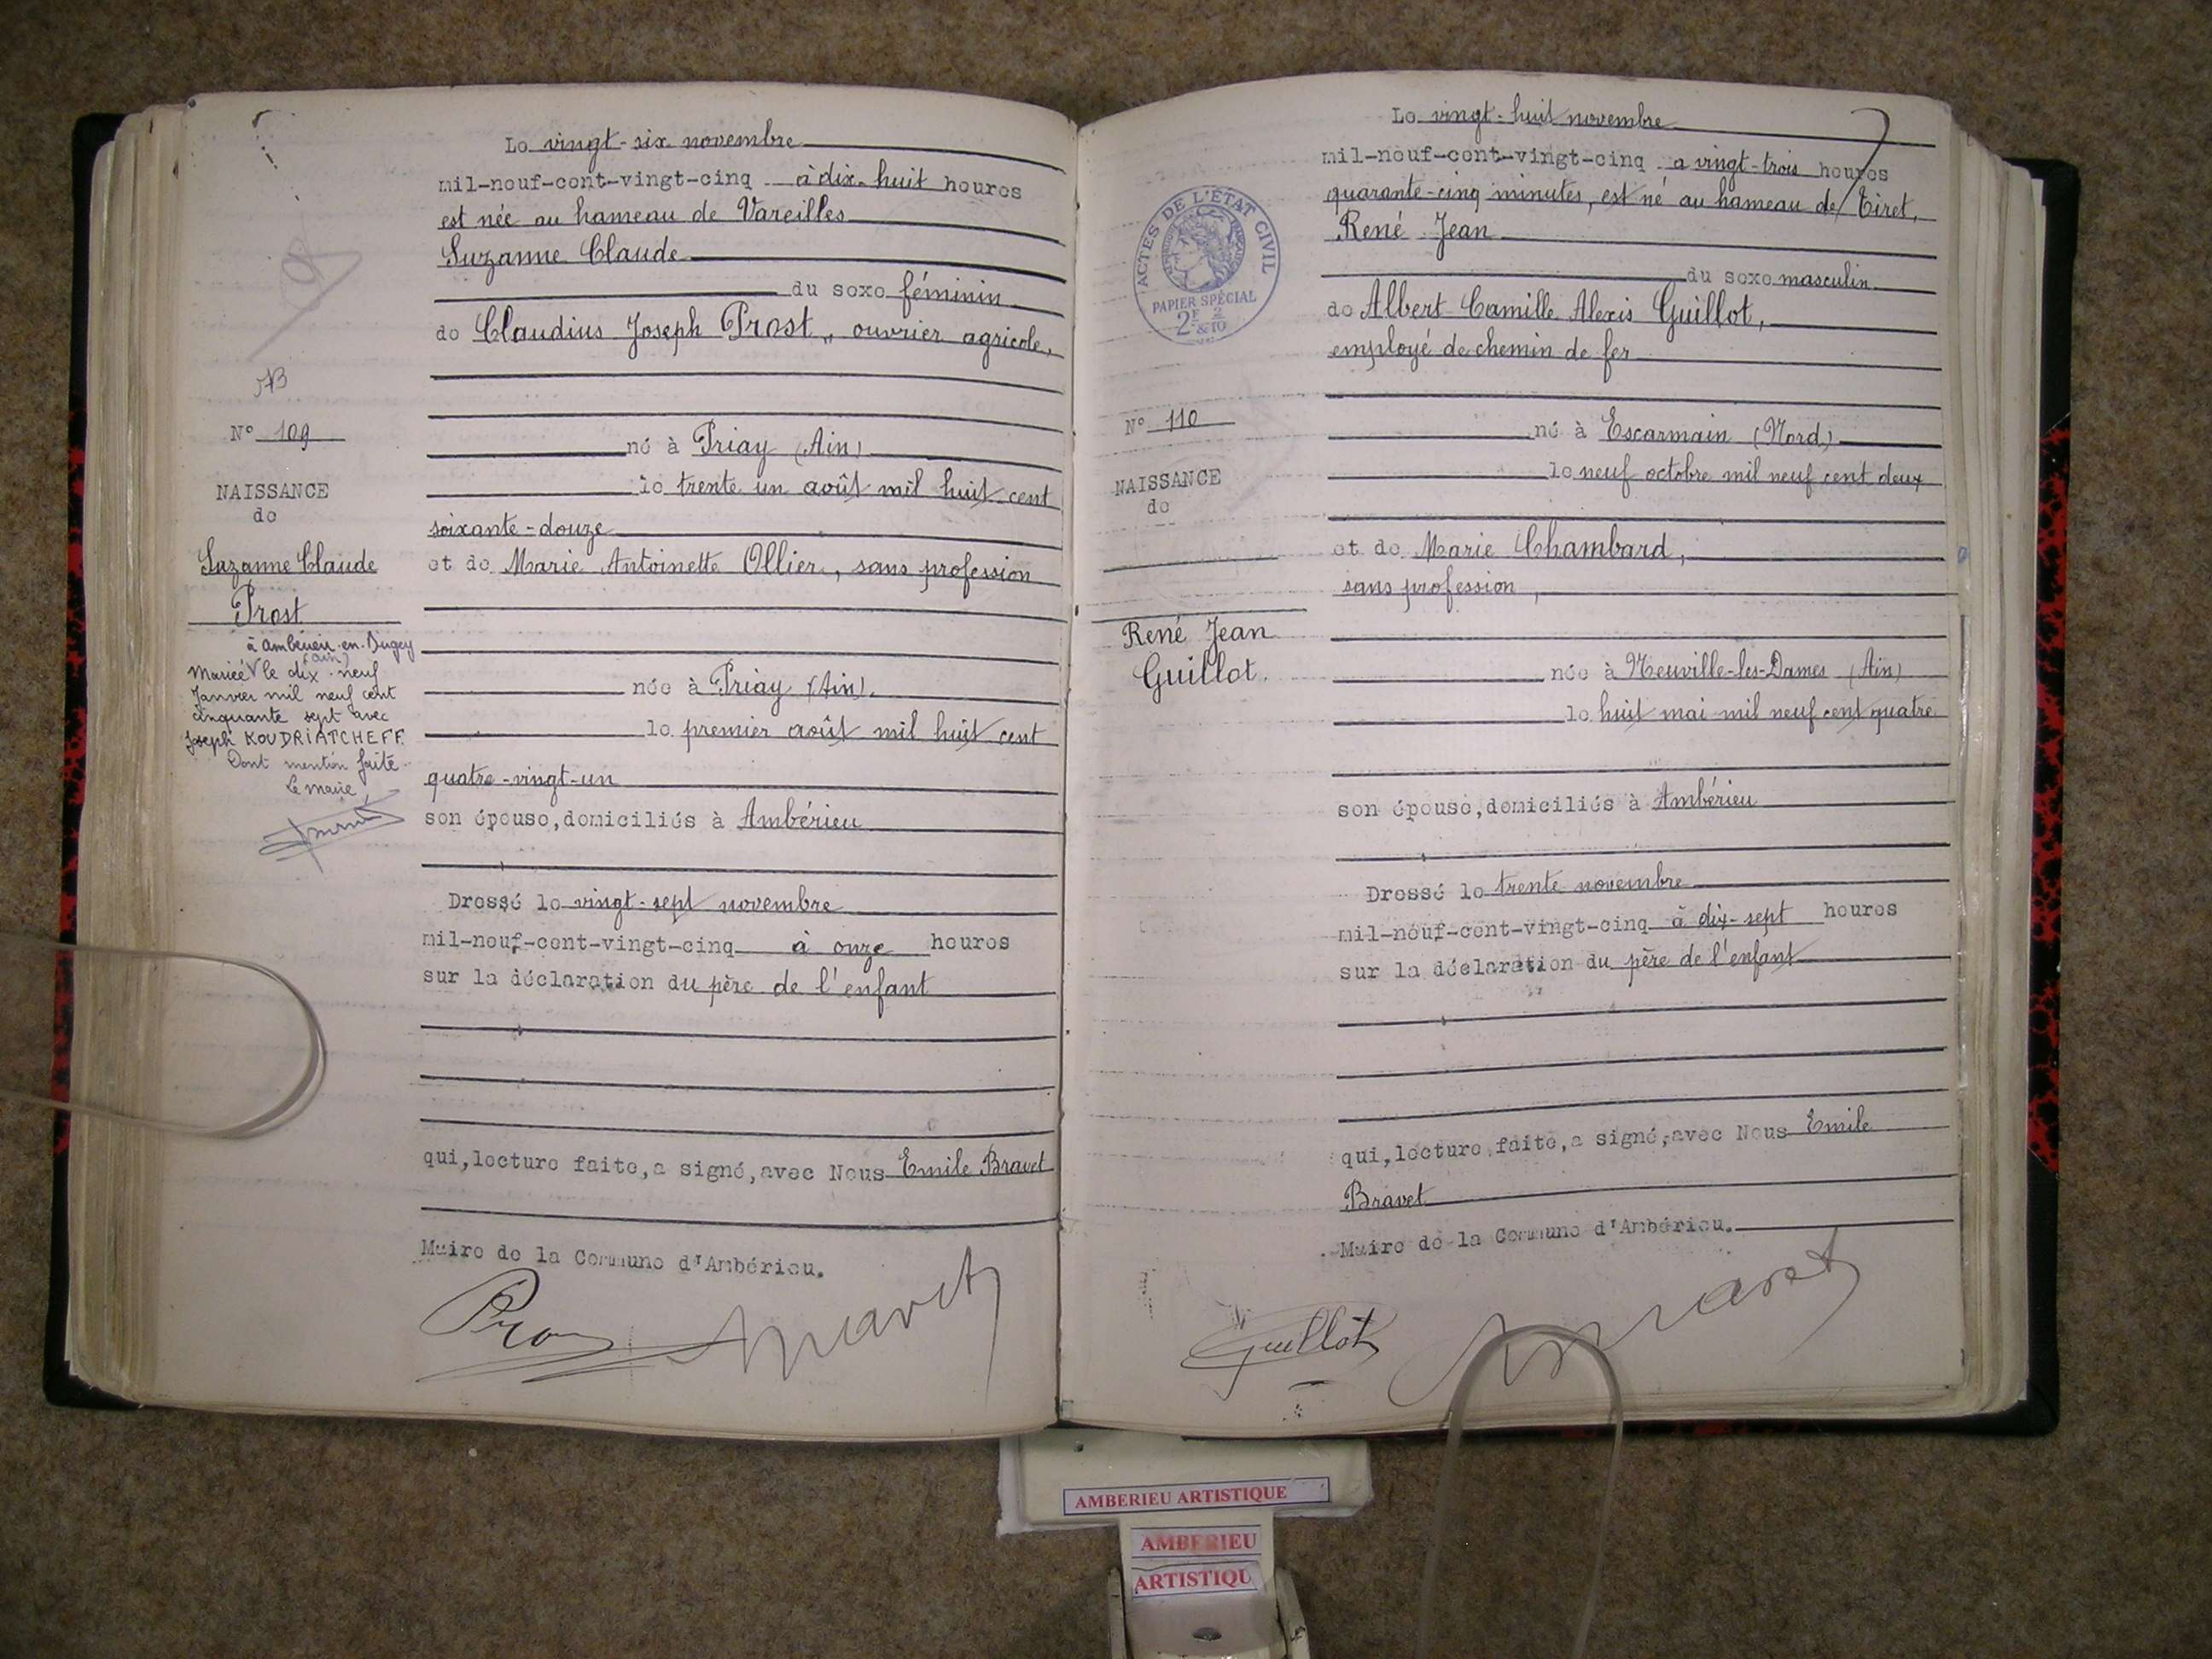 Le vingt-six novembre
mil-neuf-cent-vingt-cinq à dix-huit heures
est née au hameau de Vareilles
Suzanne Claude
du sexe féminin
de Claudius Joseph Prost, ouvrier agricole,
N° 109
né à Priay (Ain)
NAISSANCE
de
le trente un août mil huit cent
soixante-douze
Suzanne Claude
Prost
et de Marie Antoinette Ollier, sans profession
à Ambérieu-en-Bugey
(Ain)
Mariée le dix-neuf
Janvier mil neuf cent
cinquante sept avec
Joseph KOUDRIATCHEFF
Dont mention faite
Le maire
née à Priay (Ain).
le premier août mil huit cent
quatre-vingt-un
son épouse, domiciliés à Ambérieu
Dressé le vingt-sept novembre
mil-neuf-cent-vingt-cinq à onze heures
sur la déclaration du père de l'enfant
qui, lecture faite, a signé, avec Nous Emile Bravet
Maire de la Commune d'Ambérieu.
Le vingt-huit novembre
mil-neuf-cent-vingt-cinq à vingt-trois heures
quarante-cinq minutes, est né au hameau de Tiret,
René Jean
du sexe masculin
de Albert Camille Alexis Guillot,
employé de chemin de fer
ACTES DE L'ÉTAT CIVIL
PAPIER SPÉCIAL
2F 2
&10
N° 110
né à Escarmain (Nord)
NAISSANCE
de
le neuf octobre mil neuf cent deux
et de Marie Chambard,
sans profession,
René Jean
Guillot.
née à Neuville-les-Dames (Ain)
le huit mai mil neuf cent quatre
son épouse, domiciliés à Ambérieu
Dressé le trente novembre
mil-neuf-cent-vingt-cinq à dix-sept heures
sur la déclaration du père de l'enfant
qui, lecture faite, a signé, avec Nous Emile
Bravet
Maire de la Commune d'Ambérieu.
Guillot
AMBERIEU ARTISTIQUE
AMBERIEU
ARTISTIQU